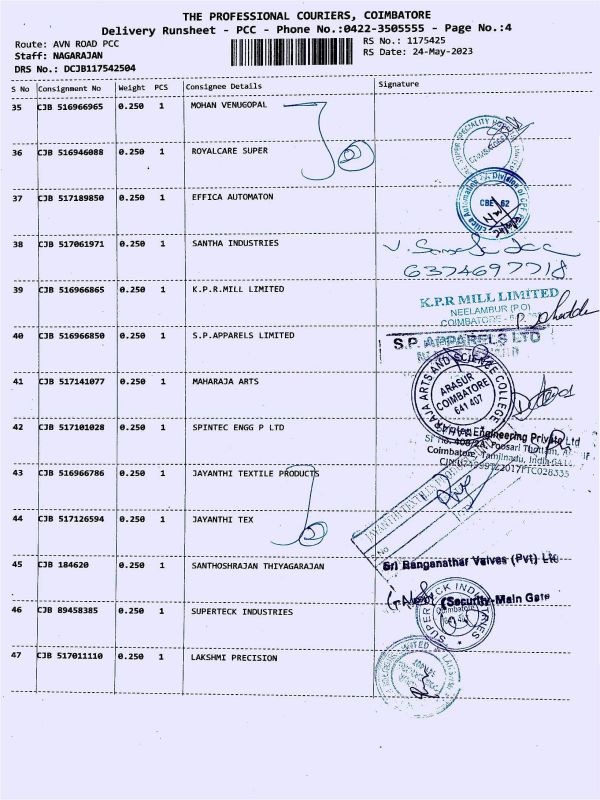 THE PROFESSIONAL COURIERS, COIMBATORE
Delivery Runsheet - PCC - Phone No.:0422-3505555 - Page No.:4
Route: AVN ROAD PCC
RS No.: 1175425
Staff: NAGARAJAN
RS Date: 24-May-2023
DRS No.: DCJB117542504
S No Consignment No Weight PCS Consignee Details Signature
35 CJB 516966965 0.250 1 MOHAN VENUGOPAL
36 CJB 516946088 0.250 1 ROYALCARE SUPER
37 CJB 517189850 0.250 1 EFFICA AUTOMATON
CBE - 62
38 CJB 517061971 0.250 1 SANTHA INDUSTRIES
6374697718
39 CJB 516966865 0.250 1 K.P.R.MILL LIMITED
K.P.R MILL LIMITED
NEELAMBUR (P.O)
COIMBATORE - 6
40 CJB 516966850 0.250 1 S.P.APPARELS LIMITED
S.P. APPARELS LTD
41 CJB 517141077 0.250 1 MAHARAJA ARTS
RAJA ARTS AND SCIENCE COLLEGE
ARASUR
COIMBATORE
641 407
42 CJB 517101028 0.250 1 SPINTEC ENGG P LTD
Engineering Private Ltd
Coimbatore, Tamilnadu, India
43 CJB 516966786 0.250 1 JAYANTHI TEXTILE PRODUCTS
44 CJB 517126594 0.250 1 JAYANTHI TEX
45 CJB 184620 0.250 1 SANTHOSHRAJAN THIYAGARAJAN
Sri Ranganathar Valves (Pvt) Ltd
(Security-Main Gate
46 CJB 89458385 0.250 1 SUPERTECK INDUSTRIES
47 CJB 517011110 0.250 1 LAKSHMI PRECISION